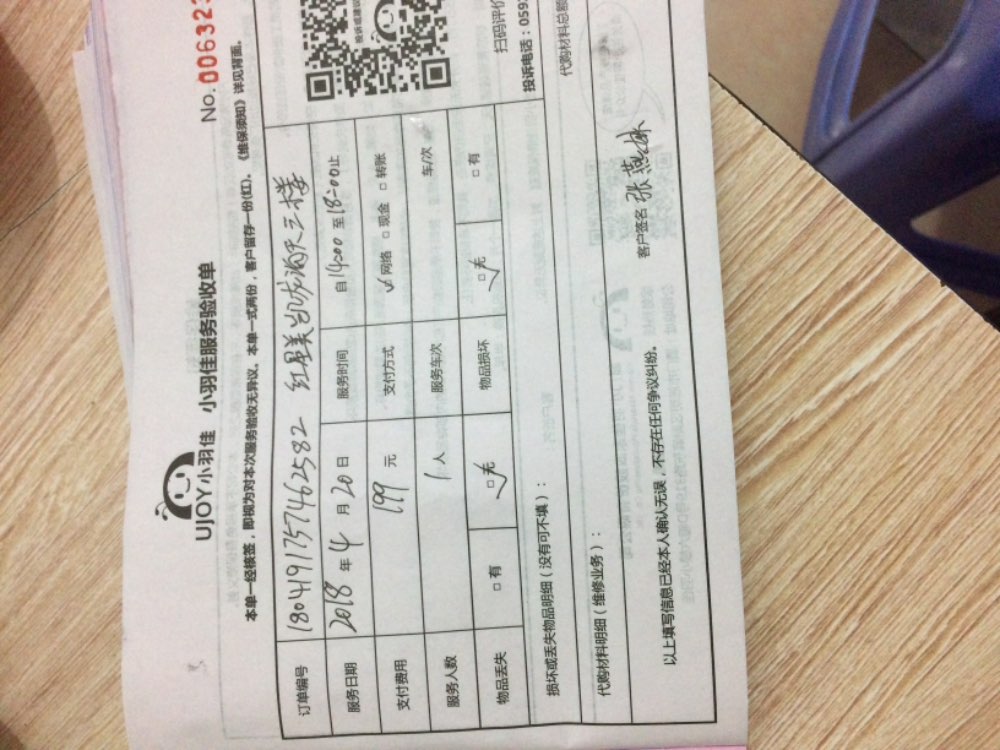 UJOY小羽佳 小羽佳服务验收单 No. 00632
本单一经核签，即视为对本次服务验收无异议。本单一式两份，客户留存一份(红)。《维保须知》详见背面。
订单编号 180419175746 2582
服务日期 2018 年 4 月 20 日 服务时间 自 14:00 至 18:00 止
支付费用 199 元 支付方式 ✓网络 □现金 □转账
服务人数 1 人 服务车次 车/次
物品丢失 □有 □无 物品损坏 □无 □有
损坏或丢失物品明细（没有可不填）：
代购材料明细（维修业务）： 代购材料总额
以上填写信息已经本人确认无误，不存在任何争议纠纷。 客户签名
扫码评价
投诉电话：059